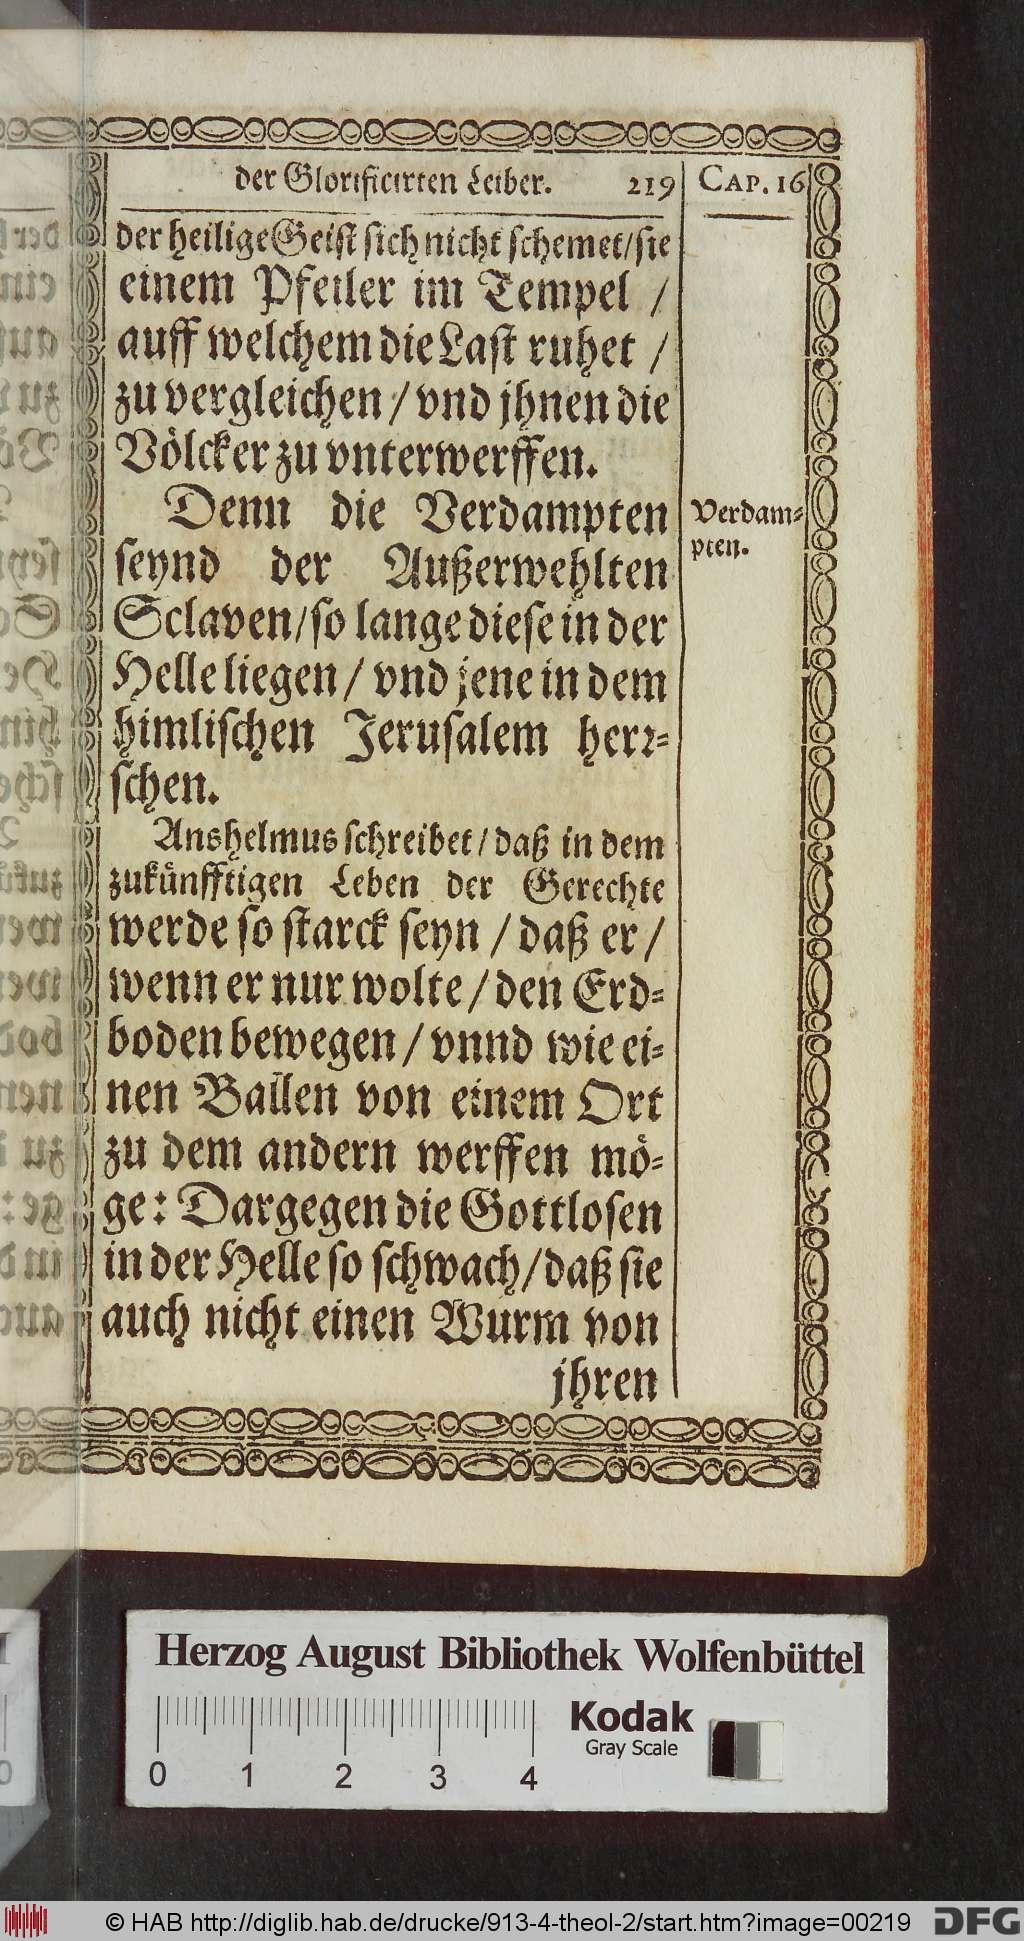 der Glorificirten Leiber. 219 CAP. 16
der heilige Geist sich nicht schemet/sie
einem Pfeiler im Tempel /
auff welchem die Last ruhet /
zu vergleichen / vnd jhnen die
Völcker zu vnterwerffen.
Denn die Verdampten
seynd der Außerwehlten
Sclaven/so lange diese in der
Helle liegen / vnd jene in dem
himlischen Jerusalem herr-
schen.
Verdam-
pten.
Anshelmus schreibet/daß in dem
zukünfftigen Leben der Gerechte
werde so starck seyn / daß er /
wenn er nur wolte / den Erd-
boden bewegen / vnnd wie ei-
nen Ballen von einem Ort
zu dem andern werffen mö-
ge: Dargegen die Gottlosen
in der Helle so schwach/daß sie
auch nicht einen Wurm von
jhren
Herzog August Bibliothek Wolfenbüttel
Kodak
Gray Scale
0 1 2 3 4
© HAB http://diglib.hab.de/drucke/913-4-theol-2/start.htm?image=00219
DFG